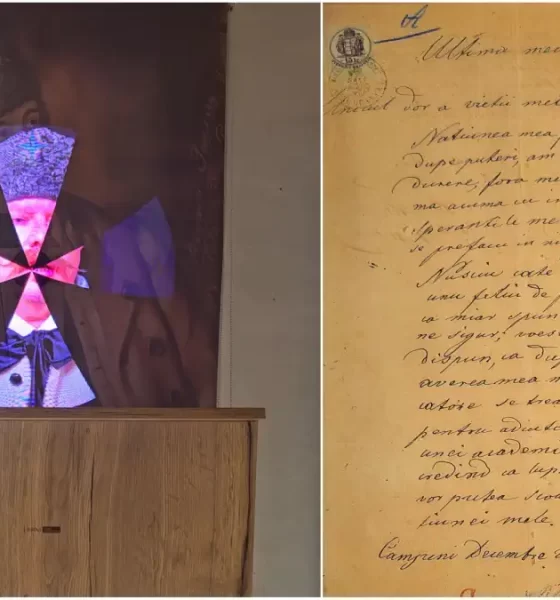 Ultima mea
Unicul dor a vietii mele
Natiunea mea
dupe puteri, am
durere, fora
ma acuma cu in
sperantile me
se prefacu in ni
Nusciu cate
unu feliu de
ca miar spun
ne sigur; voes
dispun, ca dup
averea mea m
catóre se trea
pentru adiuto
unei academi
credind ca lup
vor putea sco
tiunei mele.
Campeni Decembre